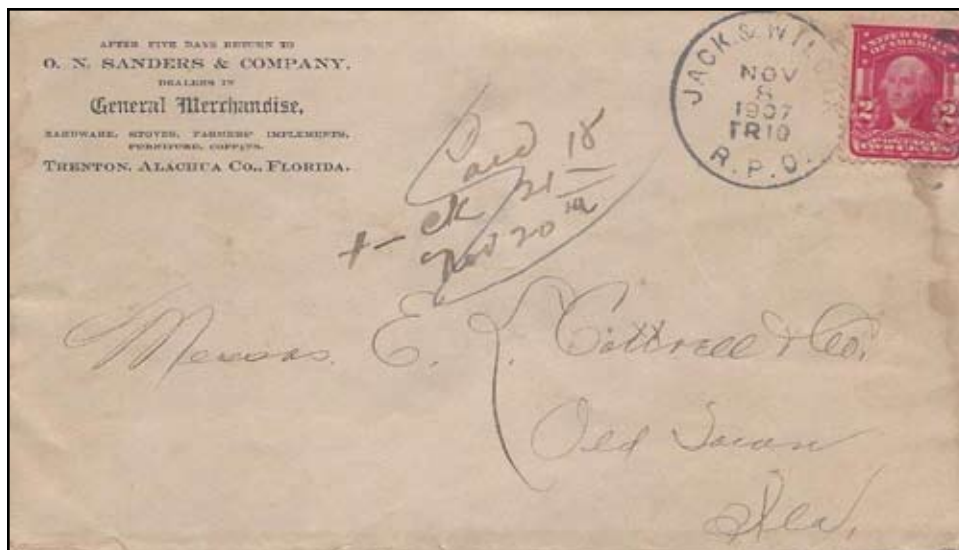 AFTER FIVE DAYS RETURN TO
O. N. SANDERS & COMPANY.
DEALERS IN
General Merchandise,
HARDWARE, STOVES, FARMERS' IMPLEMENTS,
FURNITURE, COFFINS.
TRENTON, ALACHUA CO., FLORIDA.
JACK. & WIL
NOV
8
1907
TR 10
R.P.O.
UNITED STATES
OF AMERICA
2 2
POSTAGE
TWO CENTS
18
ck 21
Nov 20th
Messrs. E. L. Cottrell & Co.
Old Town
Fla.